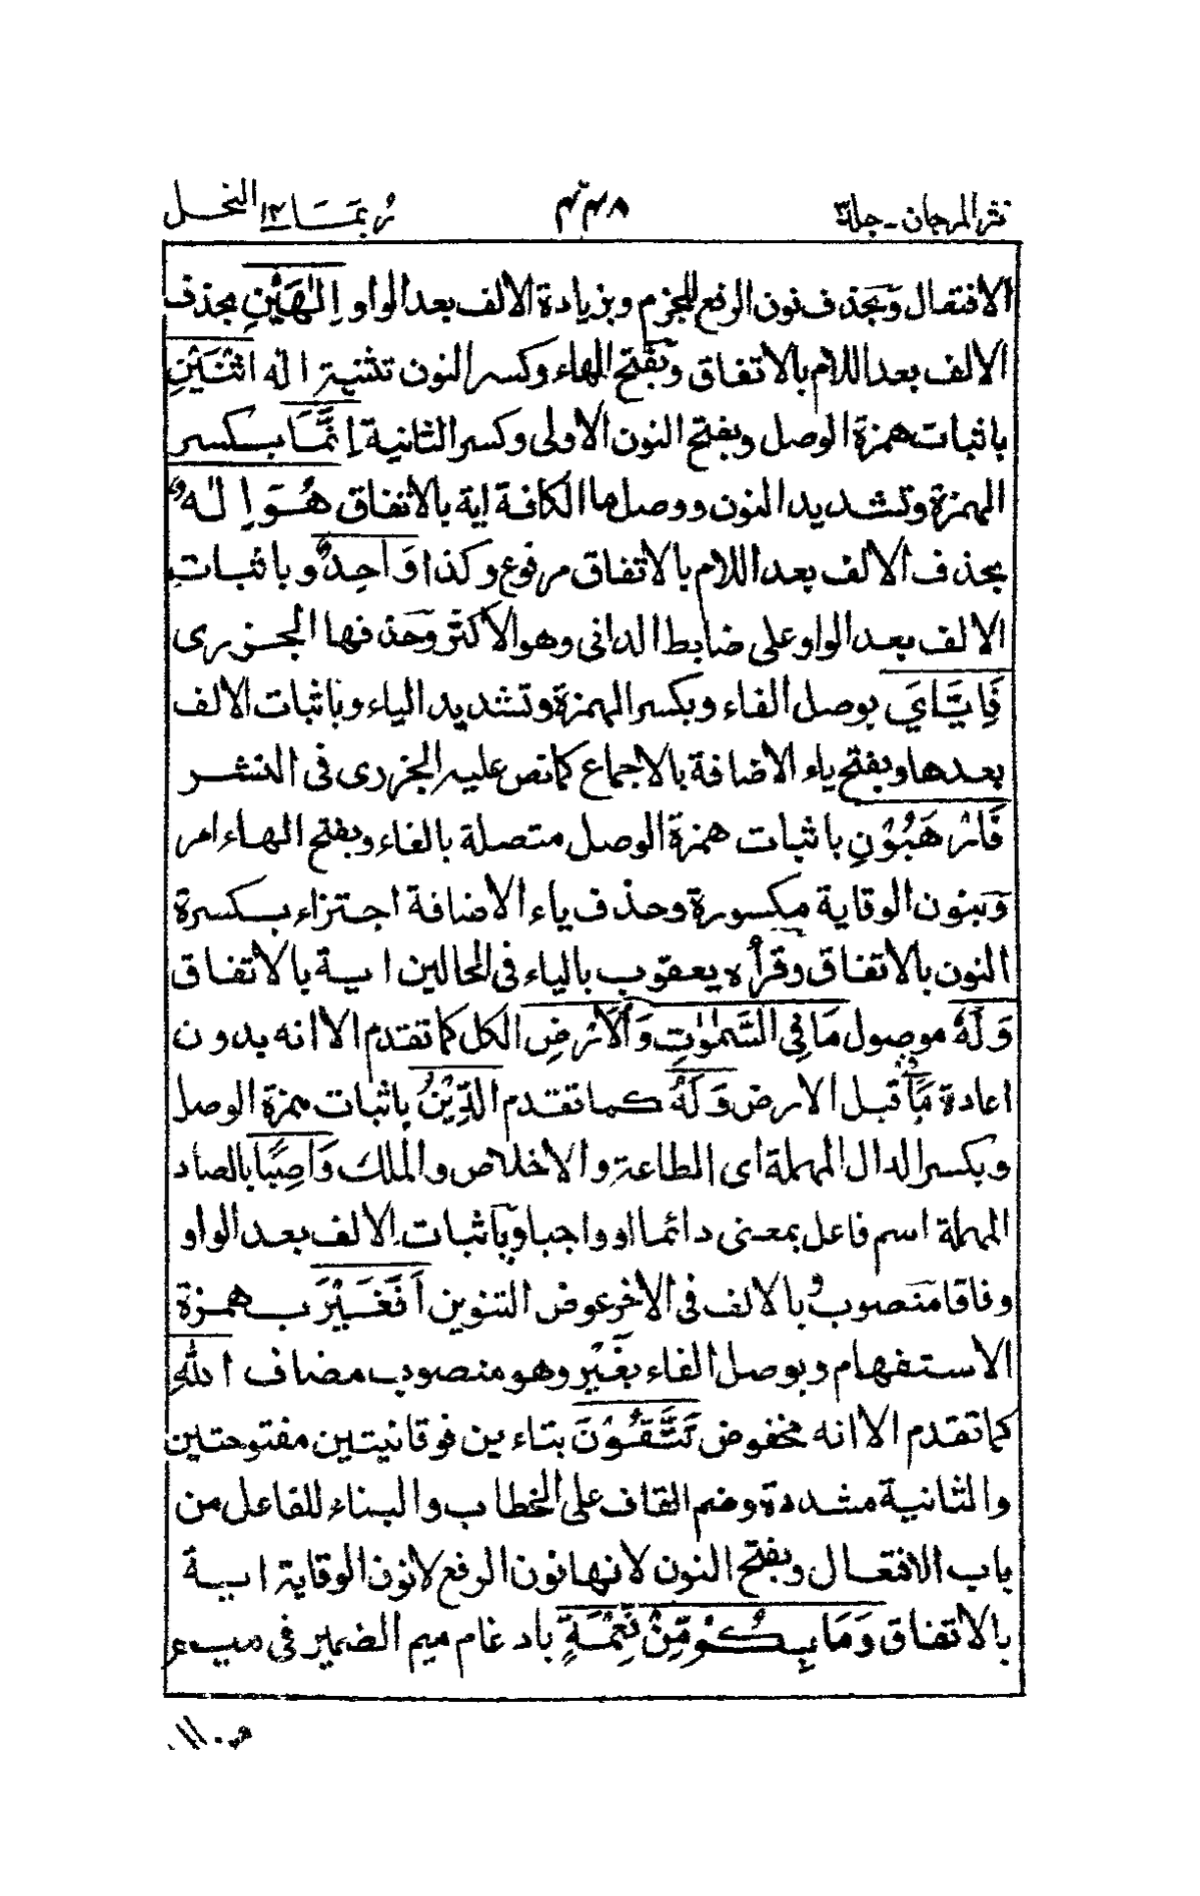 نثر المرجان ـ جلد٣ ٣٤٨ رُبَمَا ١٤ النحل
الافتعال وبحذف نون الرفع للجزم وبزيادة الالف بعد الواو اِلٰهَيْنِ بحذف
الالف بعد اللام بالاتفاق وبفتح الهاء وكسر النون تثنية اله اثْنَيْنِ
باثبات همزة الوصل وبفتح النون الاولى وكسر الثانية اِنَّمَا بكسر
الهمزة وتشديد النون ووصل ما الكافة اية بالاتفاق هُوَ اِلٰهٌ
بحذف الالف بعد اللام بالاتفاق مرفوع وكذا وَاحِدٌ وباثبات
الالف بعد الواو على ضابط الداني وهو الاكثر وحذفها الجزرى
فَاِيَّايَ بوصل الفاء وبكسر الهمزة وتشديد الياء وباثبات الالف
بعدها وبفتح ياء الاضافة بالاجماع كما نص عليه الجزرى فى النشر
فَارْهَبُوْنِ باثبات همزة الوصل متصلة بالفاء وبفتح الهاء امر
وبنون الوقاية مكسورة وحذف ياء الاضافة اجتزاء بكسرة
النون بالاتفاق وقرأه يعقوب بالياء فى الحالين اية بالاتفاق
وَلَهٗ موصول مَا فِي السَّمٰوٰتِ وَالْاَرْضِ الكل كما تقدم الا انه بدون
اعادة مَا قبل الارض وَلَهُ كما تقدم الدِّيْنُ باثبات همزة الوصل
وبكسر الدال المهملة اى الطاعة والاخلاص والملك وَاصِبًا بالصاد
المهملة اسم فاعل بمعنى دائما او واجبا وباثبات الالف بعد الواو
وفاقا منصوب وبالالف فى الاخر عوض التنوين اَفَغَيْرَ بهمزة
الاستفهام وبوصل الفاء بغَيْر وهو منصوب مضاف اللهِ
كما تقدم الا انه مخفوض تَتَّقُوْنَ بتاءين فوقانيتين مفتوحتين
والثانية مشددة وضم القاف على الخطاب والبناء للفاعل من
باب الافتعال وبفتح النون لانها نون الرفع لا نون الوقاية اية
بالاتفاق وَمَا بِكُمْ مِّنْ نِّعْمَةٍ بادغام ميم الضمير فى ميم
من